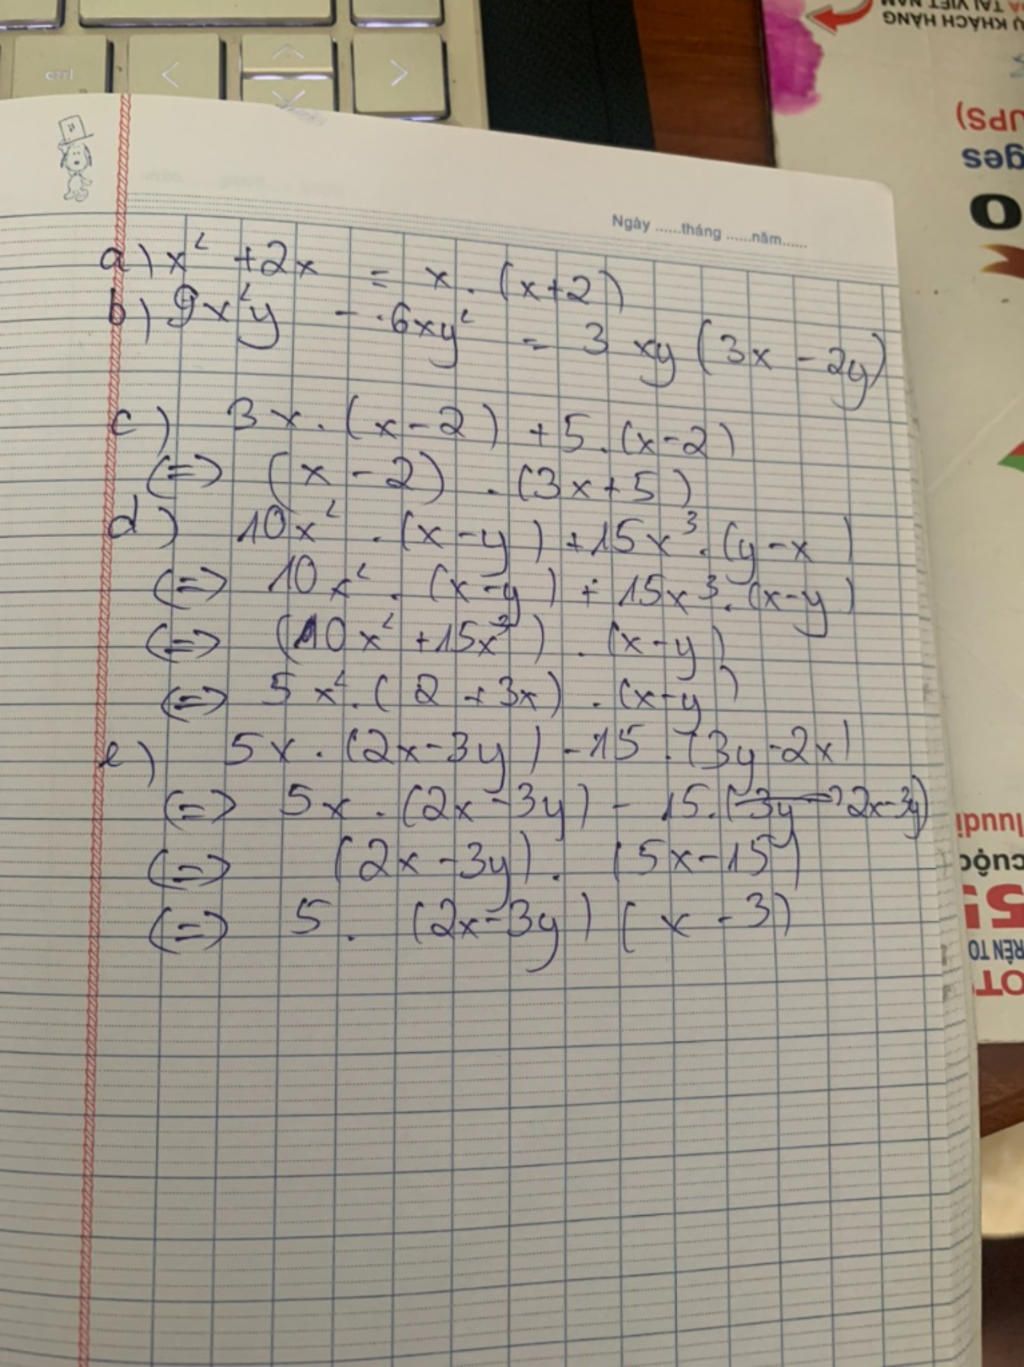 ctrl
Ngày ......tháng ......năm......
a) x² + 2x = x . (x+2)
b) 9x²y - 6xy² = 3 xy (3x - 2y)
c) 3x . (x-2) + 5 . (x-2)
<=> (x - 2) . (3x+5)
d) 10x² . (x-y) + 15x³ . (y-x)
<=> 10x² . (x-y) + 15x³ . (x-y)
<=> (10x² + 15x³) . (x-y)
<=> 5x² . (2 + 3x) . (x-y)
e) 5x . (2x-3y) - 15 . (3y-2x)
<=> 5x . (2x-3y) - 15 . (2x-3y)
<=> (2x-3y) . (5x-15)
<=> 5 . (2x-3y) (x - 3)
KHÁCH HÀNG
UPS)
ges
0
cuộc
55
RÊN TO